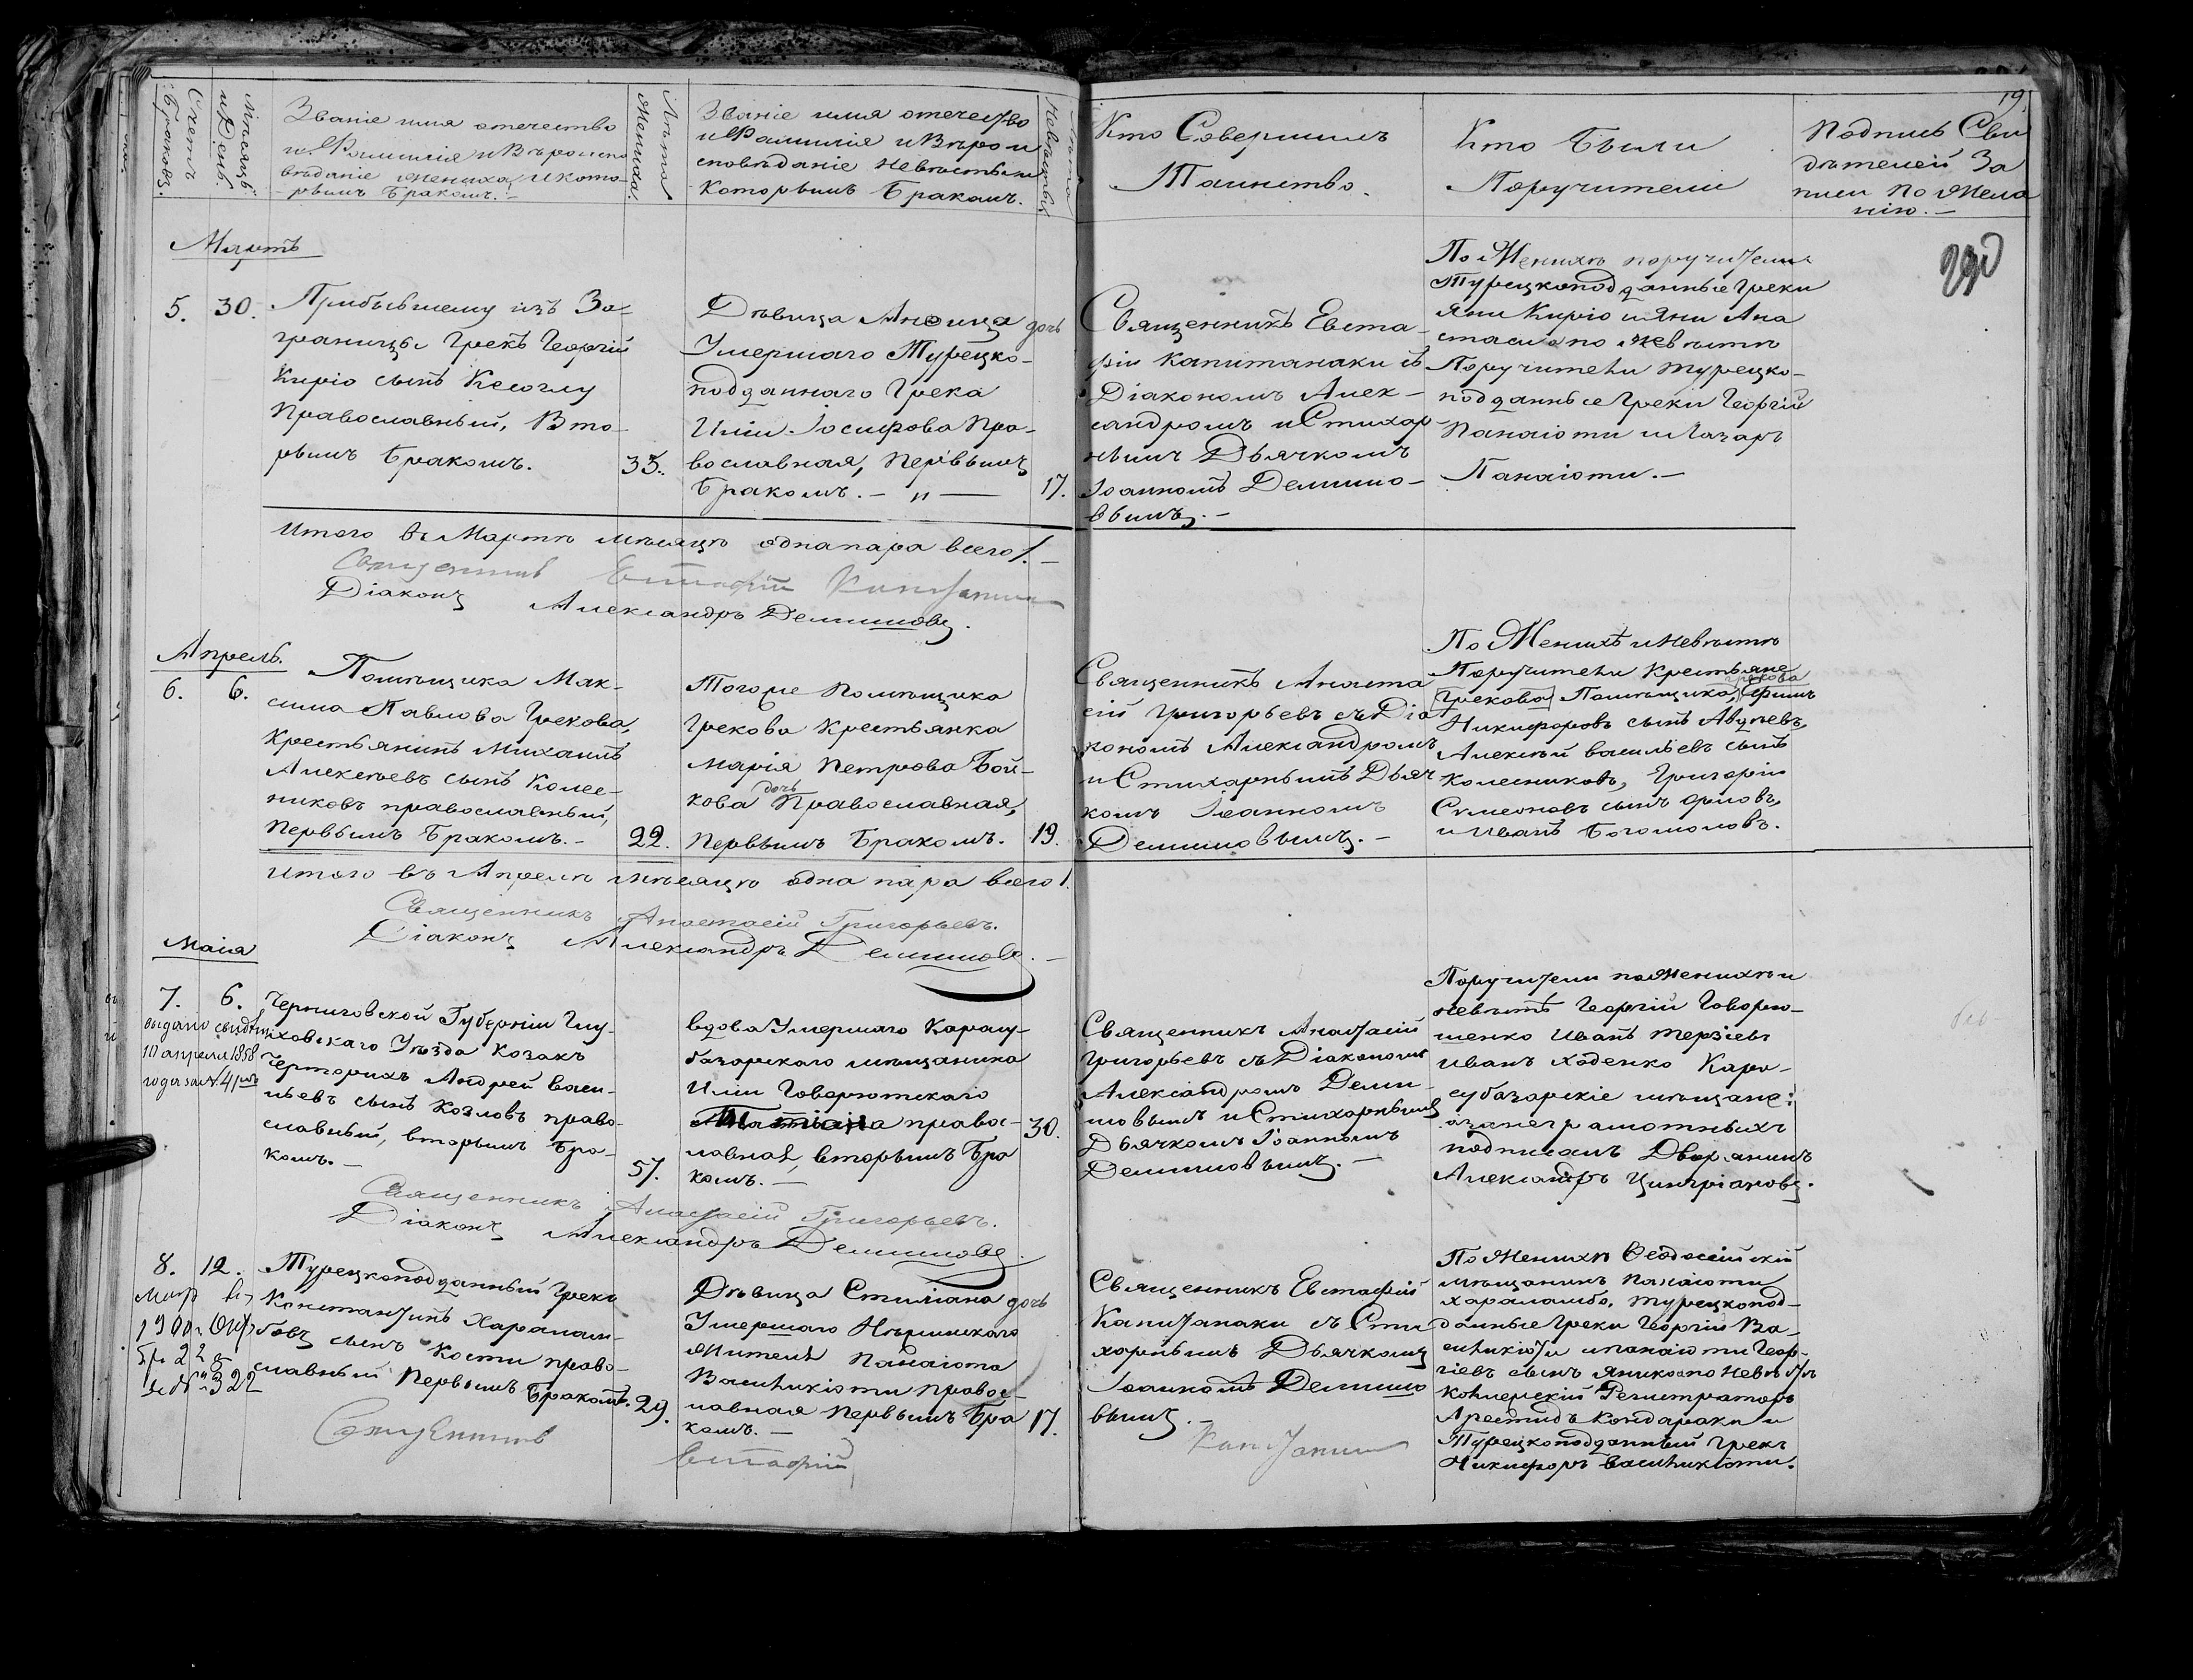 Счетъ Браковъ.
Мѣсяцъ и День.
Званіе имя отечество
и Фамиліе и Вѣроиспо
вѣданіе Жениха, и кото-
рымъ Бракомъ.-
Лѣта Жениха.
Званіе имя отечество
и Фамиліе и Вѣрои
сповѣданіе Невѣсты и
Которымъ Бракомъ.
Лѣта Невѣсты
Кто Совершилъ
Таинство.
Кто были
Поручители
Подпись Сви
дѣтелей За
писи по Жела
нію.-
19.
Мартъ
5. 30.
Прибывшему изъ За-
границы Грекъ Георгій
Киріо сынъ Кесоглу
Православный, Вто-
рымъ Бракомъ.
33.
Дѣвица дочь
Умершаго Турецко-
подданнаго Грека
Иліи Іосифова Пра-
вославная, Первымъ
Бракомъ.- „ —
17.
Священникъ Евста-
фій Капитанаки съ
Діакономъ Алек-
сандромъ и Стихар
нымъ Дьячкомъ
Іоанномъ Демишо-
вымъ.-
По Женихѣ поручители
Турецкоподданные Греки
Яни Киріо и Яни Ана
стаси а по Невѣстѣ
Поручители турецко-
подданные Греки Георгій
Панаіоти и Лазарь
Панаіоти.-
Итого въ Мартѣ мѣсяцѣ одна пара всего 1.-
Священникъ Евстафій Капитанаки
Діаконъ Александръ Демишовъ.
Апрель.
6. 6.
Помѣщика Мак-
сима Павлова Грекова,
Крестьянинъ Михаилъ
Алексѣевъ сынъ Колес-
никовъ православный,
Первымъ Бракомъ.-
22.
Тогоже Помѣщика
Грекова Крестьянка
Марія Петрова Бой-
кова дочь Православная,
Первымъ Бракомъ.
19.
Священникъ Анаста
сій Григорьевъ съ Діа
кономъ Александромъ
и Стихарнымъ Дьяч
комъ Іоанномъ
Демишовымъ.-
По Женихѣ и Невѣстѣ
Поручители Крестьяне
Грекова Помѣщика, Грекова Ефимъ
Никифоровъ сынъ Авдѣевъ,
Алексѣй Васильевъ сынъ
Колесниковъ, Григорій
Симеоновъ сынъ Орловъ,
и Иванъ Богомоловъ.
Итого въ Апрелѣ мѣсяцѣ одна пара всего 1.
Священникъ Анастасій Григорьевъ.
Діаконъ Александръ Демишовъ.-
Маія
7. 6.
выдано свидѣт
10 апреля 1858
года за № 41
Черниговской Губерніи Глу-
ховскаго Уѣзда Козакъ
Андрей Васи-
льевъ сынъ Козловъ право-
славный, вторымъ Бра-
комъ.-
57.
вдова Умершаго Карасу-
базарскаго мѣщанина
Иліи Говорютскаго
Татіана правос-
лавная, вторымъ Бра
комъ.—
30.
Священникъ Анастасій
Григорьевъ съ Діакономъ
Александромъ Деми-
шовымъ и Стихарнымъ
Дьячкомъ Іоанномъ
Демишовымъ.-
Поручители по Женихѣ и
невѣстѣ Георгій Говорю-
шенко Иванъ Терзіевъ
Иванъ Ходенко Кара-
субазарскіе мѣщане:
а за неграмотныхъ
подписалъ Дворянинъ
Александръ
Священникъ Анастасій Григорьевъ.
Діаконъ Александръ Демишовъ.
8. 12.
1900
№ 322
Турецкоподданный Грекъ
Константинъ Харалам-
бовъ сынъ Кости право-
славный Первымъ Бракомъ.
29.
Дѣвица Стиліана дочь
Умершаго Нѣжинскаго
Жителя Панаіота
Василикіоти правос-
лавная Первымъ Бра
комъ.—
17.
Священникъ Евстафій
Капитанаки съ Сти
харнымъ Дьячкомъ
Іоанномъ Демишо
вымъ.-
По Женихѣ Ѳеодосійскій
мѣщанинъ Панаіоти
Хараламбо, Турецкопод-
данные Греки Георгій Ва-
силикіоти и Панаіоти Геор-
гіевъ сынъ Яники а по Невѣстѣ
Коллежскій Регистраторъ
Арестидъ Кондараки и
Турецкоподданный Грекъ
Никифоръ Василикіоти.
Священникъ Евстафій Капитанаки